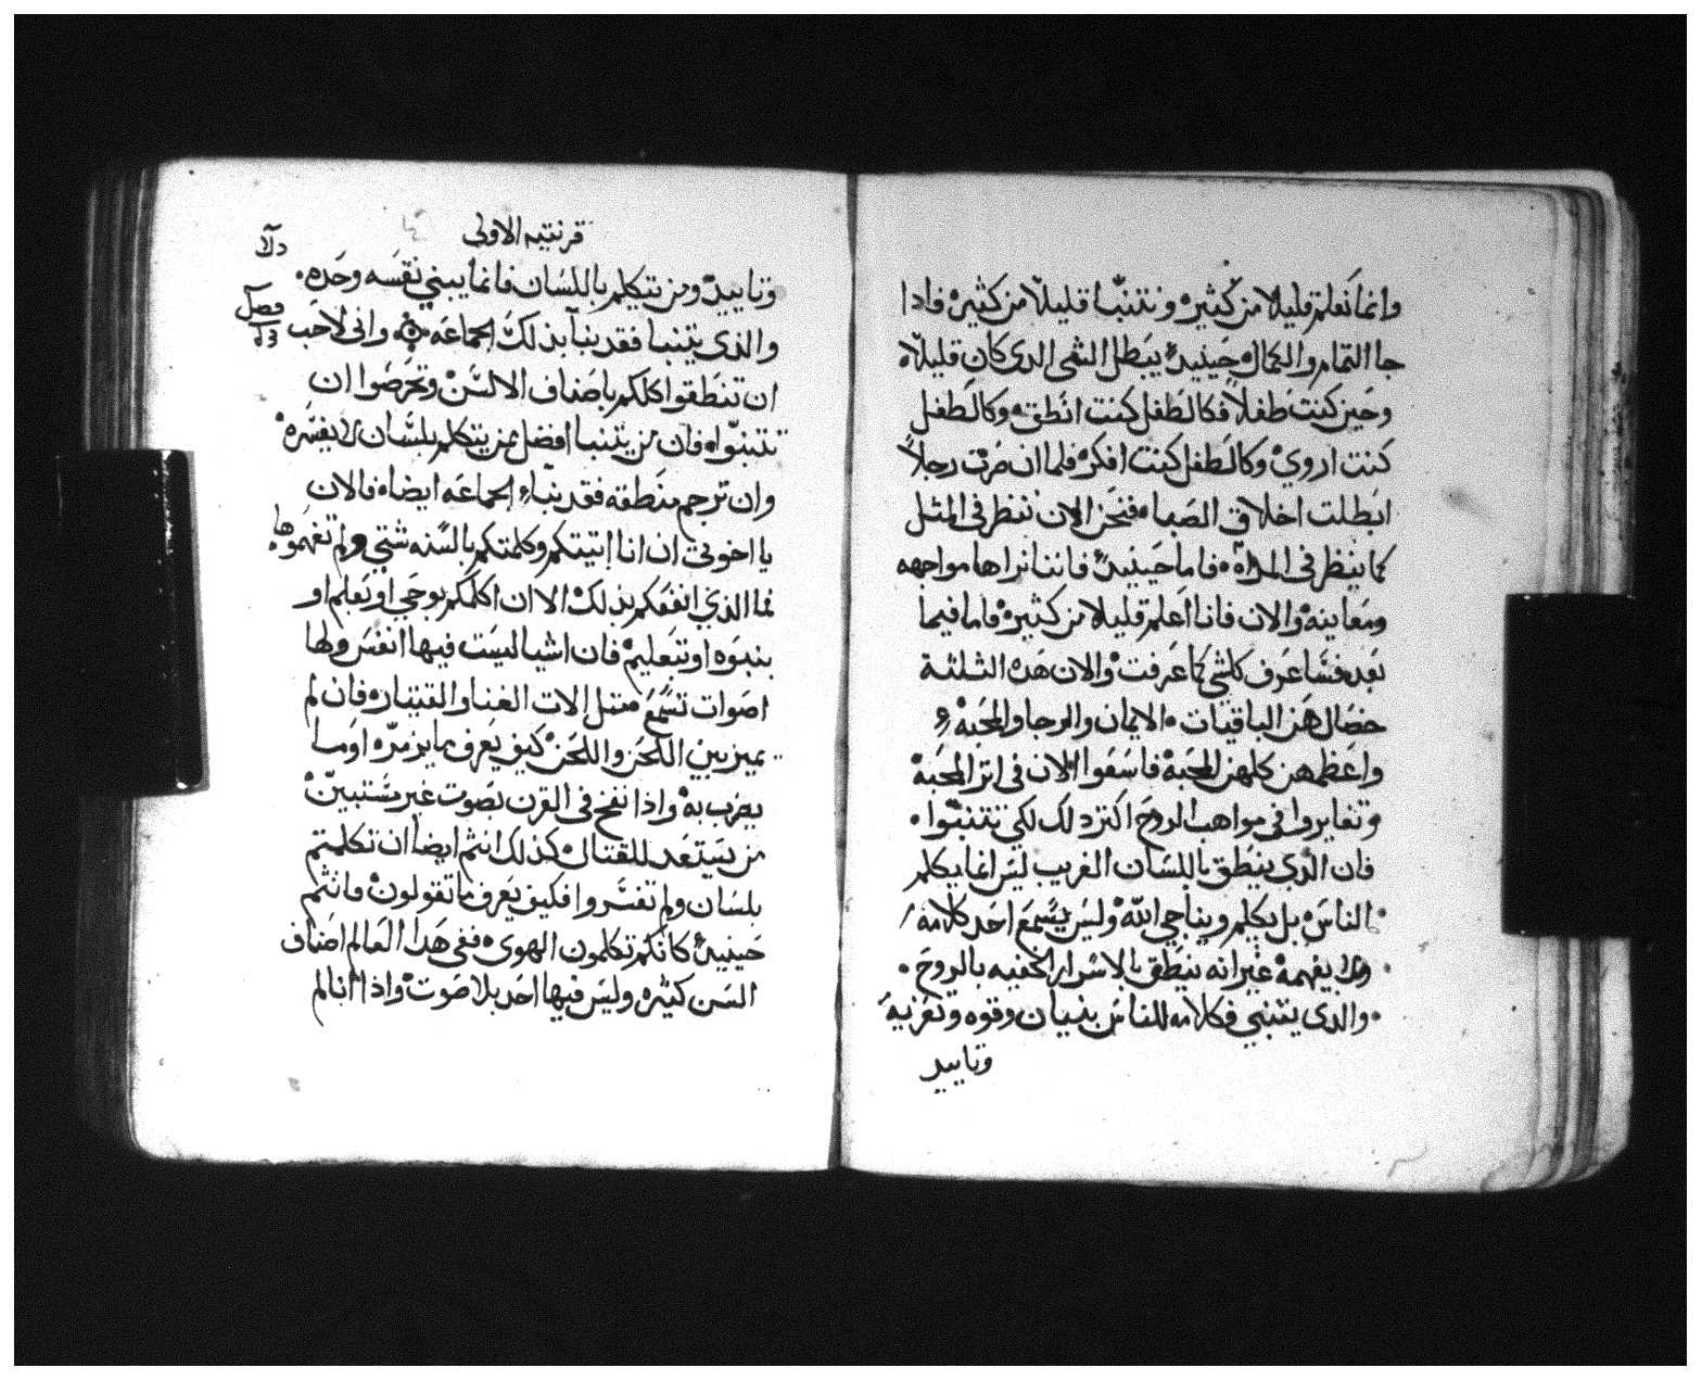 وانما نعلم قليلا من كثير ونتنبا قليلا من كثير فادا
جا التمام والكمال حينيد يبطل الشى الدى كان قليلا
وحين كنت طفلا فكالطفل كنت انطق وكالطفل
كنت اروي وكالطفل كنت افكر فلما ان صرت رجلا
ابطلت اخلاق الصبا فنحن الان ننظر في المثل
كما ينظر في المراة فاما حينيد فاننا نراها مواجهه
ومعاينه والان فانا اعلم قليلا من كثير فاما فيما
بعد فساعرف كلشي كما عرفت والان هده الثلثة
خصال هن الباقيات الايمان والرجا والمحبة
واعظمهن كلهن المحبة فاسعوا الان في اثر المحبة
وتغايروا في مواهب الروح اكثر دلك لكي تتنبوا
فان الدي ينطق باللسان الغريب ليس انما يكلم
الناس بل يكلم ويناجي الله وليس يسمع احد كلامه
ولا يفهمه غير انه ينطق بالاسرار الخفيه بالروح
والدى يتنبي فكلامه للناس بنيان وقوه وتعزيه
وتاييد
قرنتيه الاولى
وتاييد ومن يتكلم باللسان فانما يبني نفسه وحده
والذى يتنبا فقد بنا بذلك الجماعه وانى لاحب
فصل
ان تنطقوا كلكم باصناف الالسن وتحرصوا ان
تتنبوا فان من يتنبا افضل ممن يتكلم بلسان لا يفسره
وان ترجم منطقه فقد بناء الجماعه ايضا فالان
يا اخوتي ان انا اتيتكم وكلمتكم بالسنه شتي ولم تفهموها
فما الذي انفعكم بذلك الا ان اكلمكم بوحي او تعلم او
بنبوه او تبعليم فان اشيا ليست فيها انفس ولها
اصوات تسمع مثل الات الغنا والقيتاره فان لم
يميز بين اللحن واللحن كيف يعرف ما يزمر به او ما
يضرب به واذا نفخ في القرن بصوت غير مستبين
من يستعد للقتال كذلك انتم ايضا ان تكلمتم
بلسان ولم تفسروا فكيف يعرف ما تقولون فانتم
حينيد كانكم تكلمون الهوى ففي هدا العالم اصناف
السن كثيره وليس فيها احد بلا صوت واذا انا لم